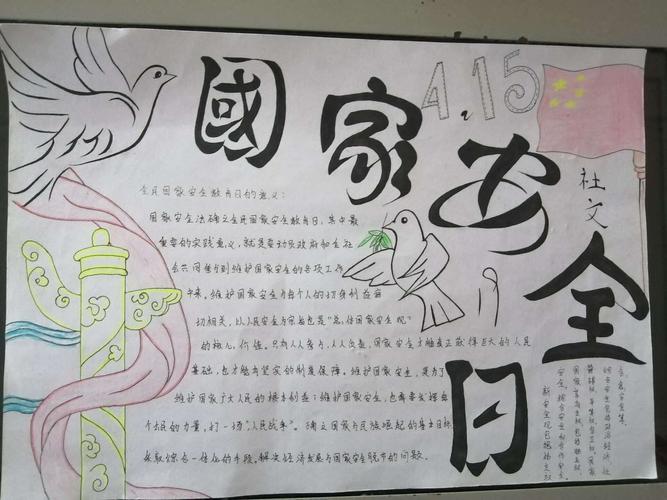 國家安全日
4.15
社文
全民国家安全教育日的意义：
国家安全法确立全民国家安全教育日，其中最
重要的实践意义，就是要动员政府和全社
会共同参与到维护国家安全的各项工作
中来。维护国家安全与每个人的切身利益密
切相关，以人民安全为宗旨也是“总体国家安全观”
的核心价值。只有人人参与，人人负责，国家安全才能真正获得巨大的人民
基础，也才能有坚实的制度保障。维护国家安全，是为了
维护国家广大人民的根本利益；维护国家安全，也需要发挥每
个公民的力量，打一场“人民战争”。确立国家与民族崛起的安全目标
采取综合一体化的手段，解决经济发展与国家安全脱节的问题。
新安全观已提出主权